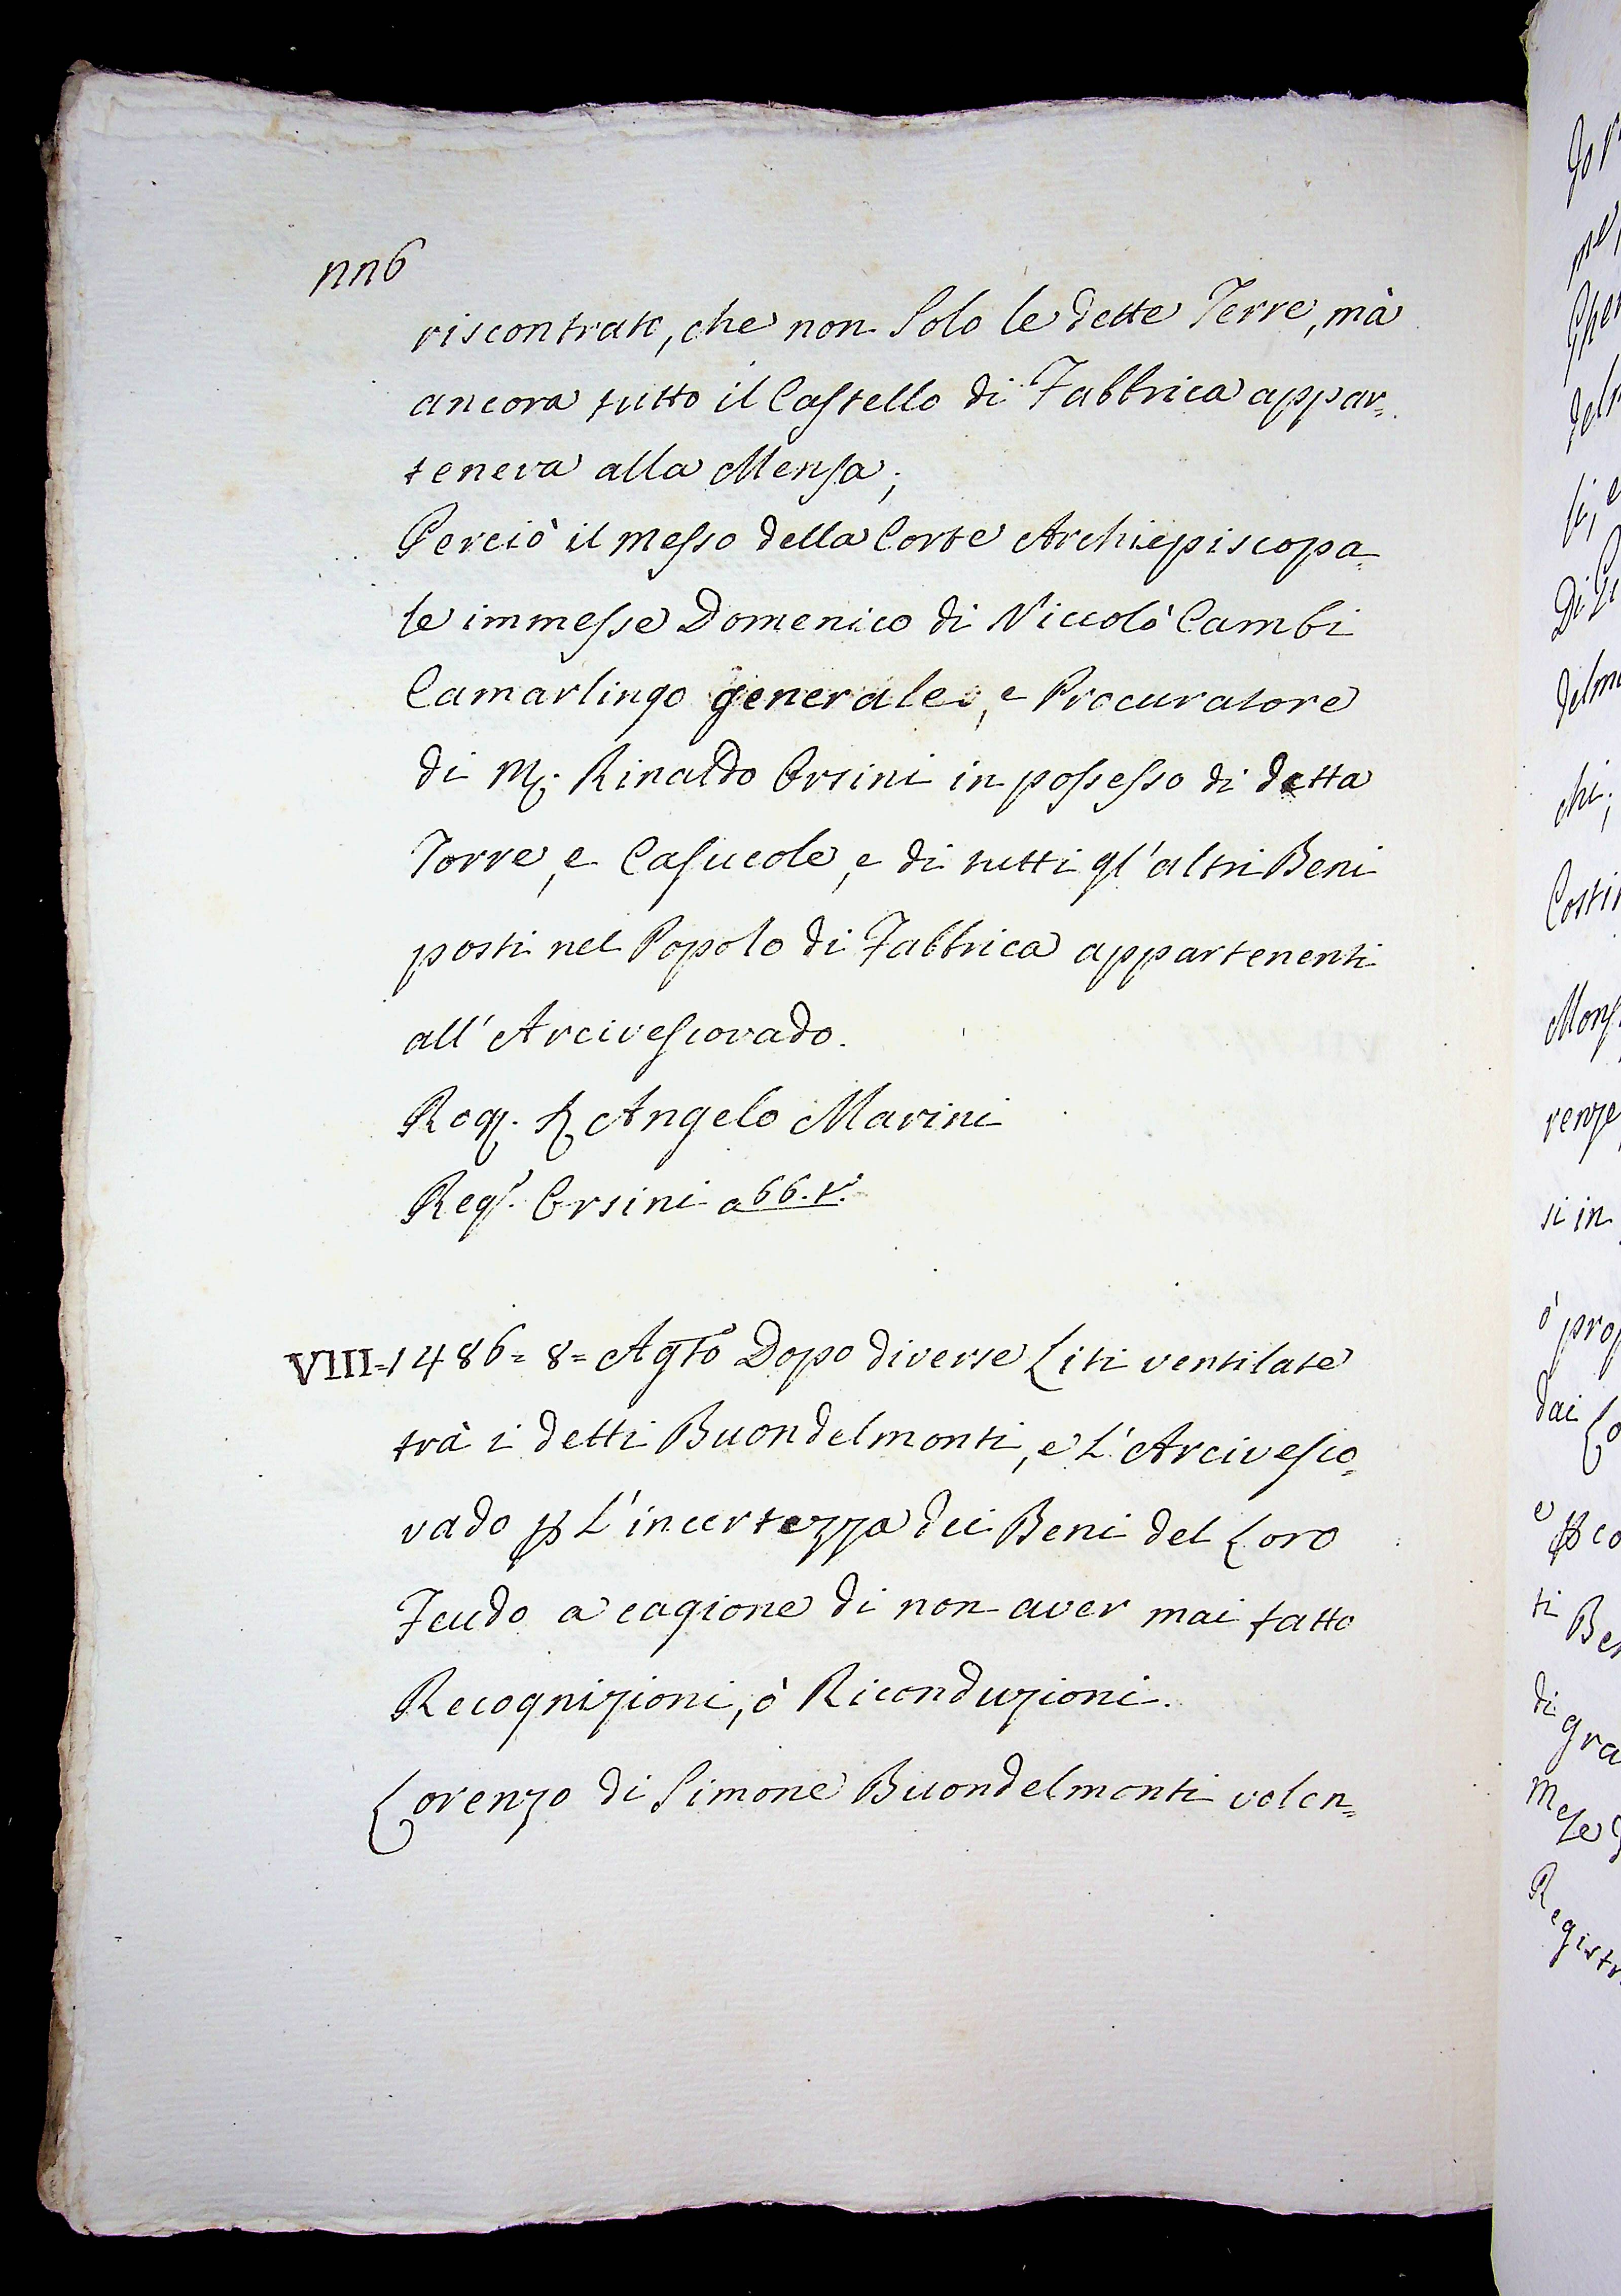 nn6
riscontrato, che non solo le dette Terre, mà
ancora tutto il Castello di Fabbrica appar=
teneva alla Mensa;
Perciò il Messo della Corte Archiepiscopa=
le immesse Domenico di Niccolò Cambi
Camarlingo generale, e Procuratore
di M. Rinaldo Orsini in possesso di detta
Torre, e Casucole, e di tutti gl'altri Beni
posti nel Popolo di Fabbrica appartenenti
all'Arcivescovado.
Rog. Angelo Marini
Reg.º Orsini a 66. v.
VIII=1486=8=Agto Dopo diverse Liti ventilate
trà i detti Buondelmonti, e L'Arcivesco=
vado p L'incertezza dei Beni del Loro
Feudo a cagione di non aver mai fatto
Recognizioni, ò Riconduzioni.
Lorenzo di Simone Buondelmonti volen=